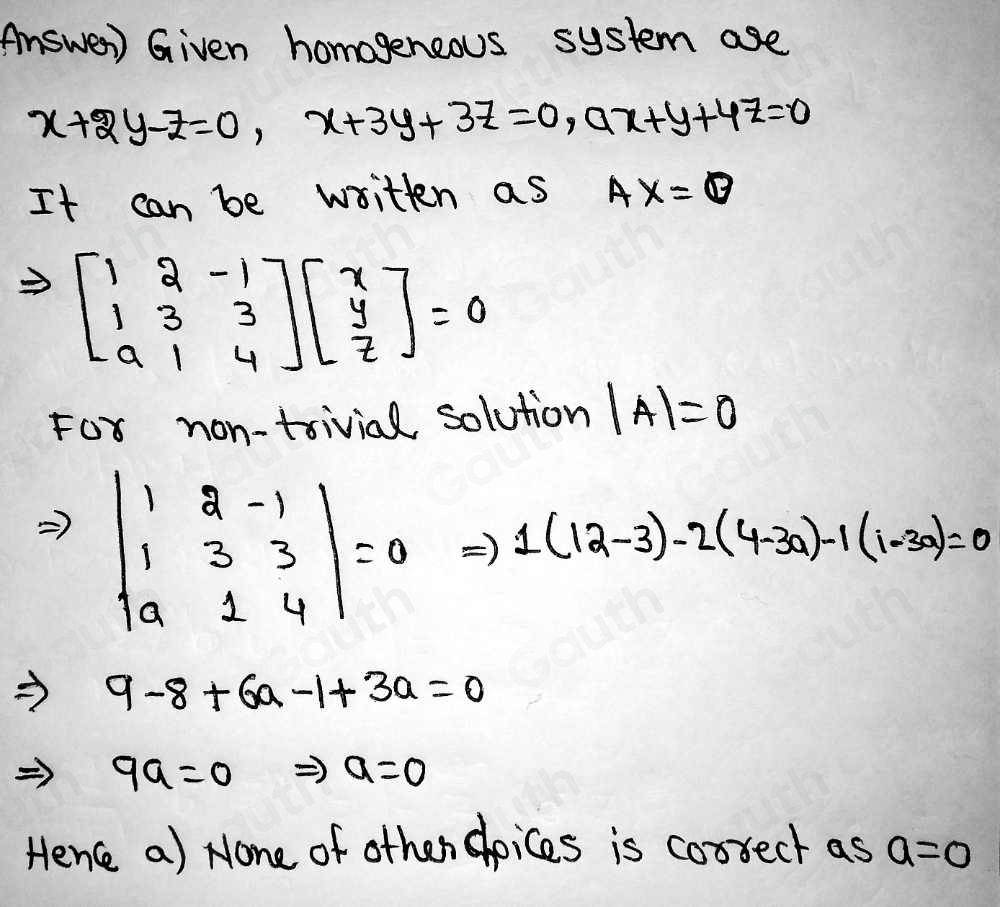 Answer) Given homogeneous system are
x+2y-z=0, x+3y+3z=0, ax+y+4z=0
It can be written as AX=0
⇒ [1 2 -1] [x]
[1 3 3] [y] = 0
[a 1 4] [z]
For non-trivial solution |A|=0
⇒ |1 2 -1|
|1 3 3| = 0 ⇒ 1(12-3)-2(4-3a)-1(1-3a)=0
|a 1 4|
⇒ 9-8+6a-1+3a=0
⇒ 9a=0 ⇒ a=0
Hence a) None of other choices is correct as a=0
Gauth